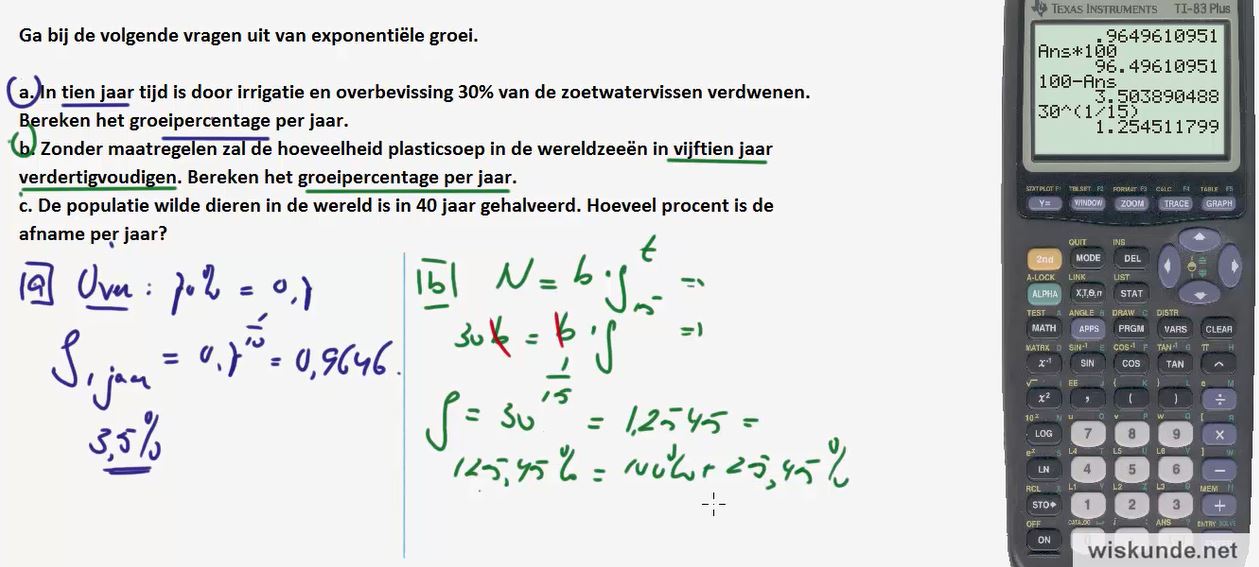 Ga bij de volgende vragen uit van exponentiële groei.
a. In tien jaar tijd is door irrigatie en overbevissing 30% van de zoetwatervissen verdwenen.
Bereken het groeipercentage per jaar.
b. Zonder maatregelen zal de hoeveelheid plasticsoep in de wereldzeeën in vijftien jaar
verdertigvoudigen. Bereken het groeipercentage per jaar.
c. De populatie wilde dieren in de wereld is in 40 jaar gehalveerd. Hoeveel procent is de
afname per jaar?
a Over : 70% = 0,7
g 1 jaar = 0,7 1/10 = 0,9646.
3,5%
b N = b · g t =>
30b = b · g 15 =>
g = 30 1/15 = 1,2545 =
125,45% = 100% + 25,45%
TEXAS INSTRUMENTS TI-83 Plus
.9649610951
Ans*100
96.49610951
100-Ans
3.503890488
30^(1/15)
1.254511799
STATPLOT F1 TBLSET F2 FORMAT F3 CALC F4 TABLE F5
Y= WINDOW ZOOM TRACE GRAPH
QUIT INS
2nd MODE DEL
A-LOCK LINK LIST
ALPHA X,T,θ,n STAT
TEST A ANGLE B DRAW C DISTR
MATH APPS PRGM VARS CLEAR
MATRX D SIN⁻¹ E COS⁻¹ F TAN⁻¹ G π H
x⁻¹ SIN COS TAN ^
√ I EE J { K } L e M
x² , ( ) ÷
10ˣ N u O v P w Q [ R
LOG 7 8 9 ×
eˣ S L4 T L5 U L6 V ] W
LN 4 5 6 −
RCL X L1 Y L2 Z L3 θ MEM "
STO▸ 1 2 3 +
OFF CATALOG i : ANS ? ENTRY SOLVE
ON
wiskunde.net